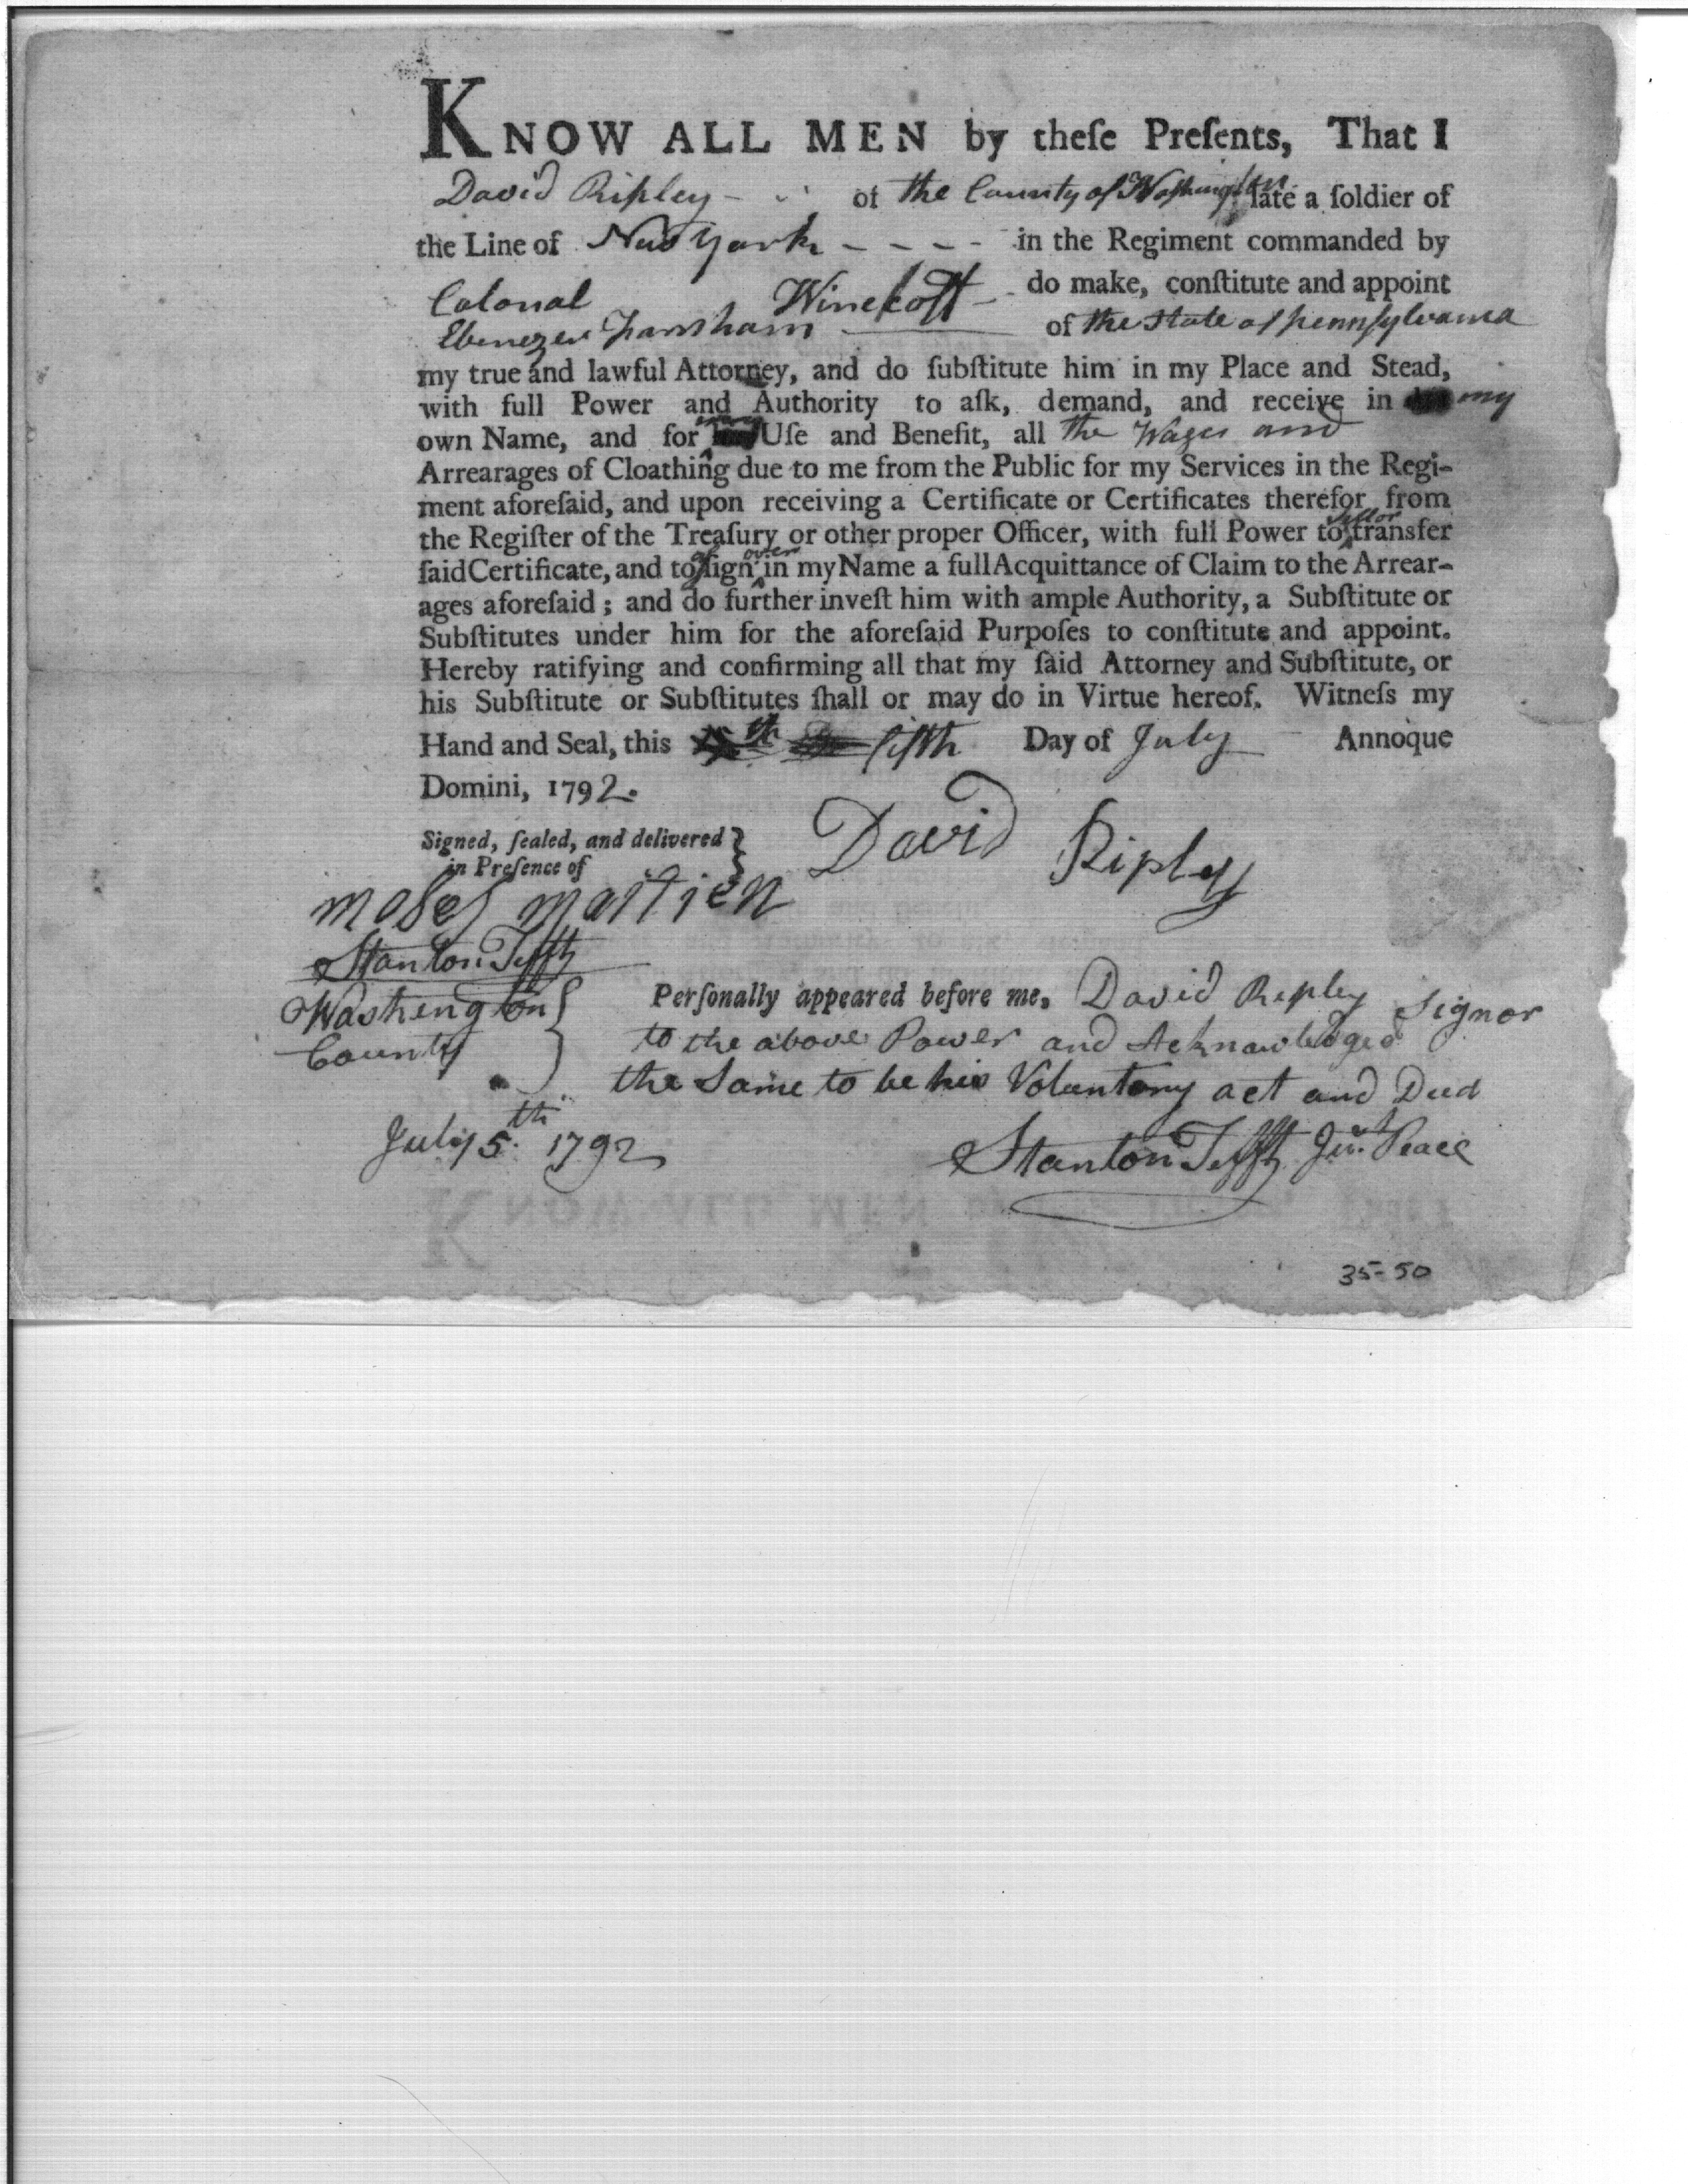 KNOW ALL MEN by theſe Preſents, That I
David Ripley - of the County of Washington late a ſoldier of
the Line of New York - - - - in the Regiment commanded by
Colonal Winekoff - do make, conſtitute and appoint
Ebenezer Farnham of the State of Pennſylvania
my true and lawful Attorney, and do ſubſtitute him in my Place and Stead,
with full Power and Authority to aſk, demand, and receive in my
own Name, and for my Uſe and Benefit, all the Wages and
Arrearages of Cloathing due to me from the Public for my Services in the Regi-
ment aforeſaid, and upon receiving a Certificate or Certificates therefor from
the Regiſter of the Treaſury or other proper Officer, with full Power to transfer
ſaid Certificate, and to ſign over in my Name a full Acquittance of Claim to the Arrear-
ages aforeſaid; and do further inveſt him with ample Authority, a Subſtitute or
Subſtitutes under him for the aforeſaid Purpoſes to conſtitute and appoint.
Hereby ratifying and confirming all that my ſaid Attorney and Subſtitute, or
his Subſtitute or Subſtitutes ſhall or may do in Virtue hereof. Witneſs my
Hand and Seal, this fifth Day of July Annoque
Domini, 1792.
Signed, ſealed, and delivered
in Preſence of
David Ripley
moses martien
Stanton Tefft
Washington
County
Perſonally appeared before me, David Ripley Signor
to the above Power and Acknowledged
the Same to be his Voluntory act and Deed
July 5th 1792
Stanton Tefft Jus.t Peace
35-50